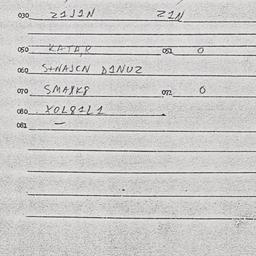 030 Z1J1N Z1N
050 KATAR 052 0
060 S+NAJCN D1NUZ
070 SMA8K8 072 0
080 XOL81L1
081 —